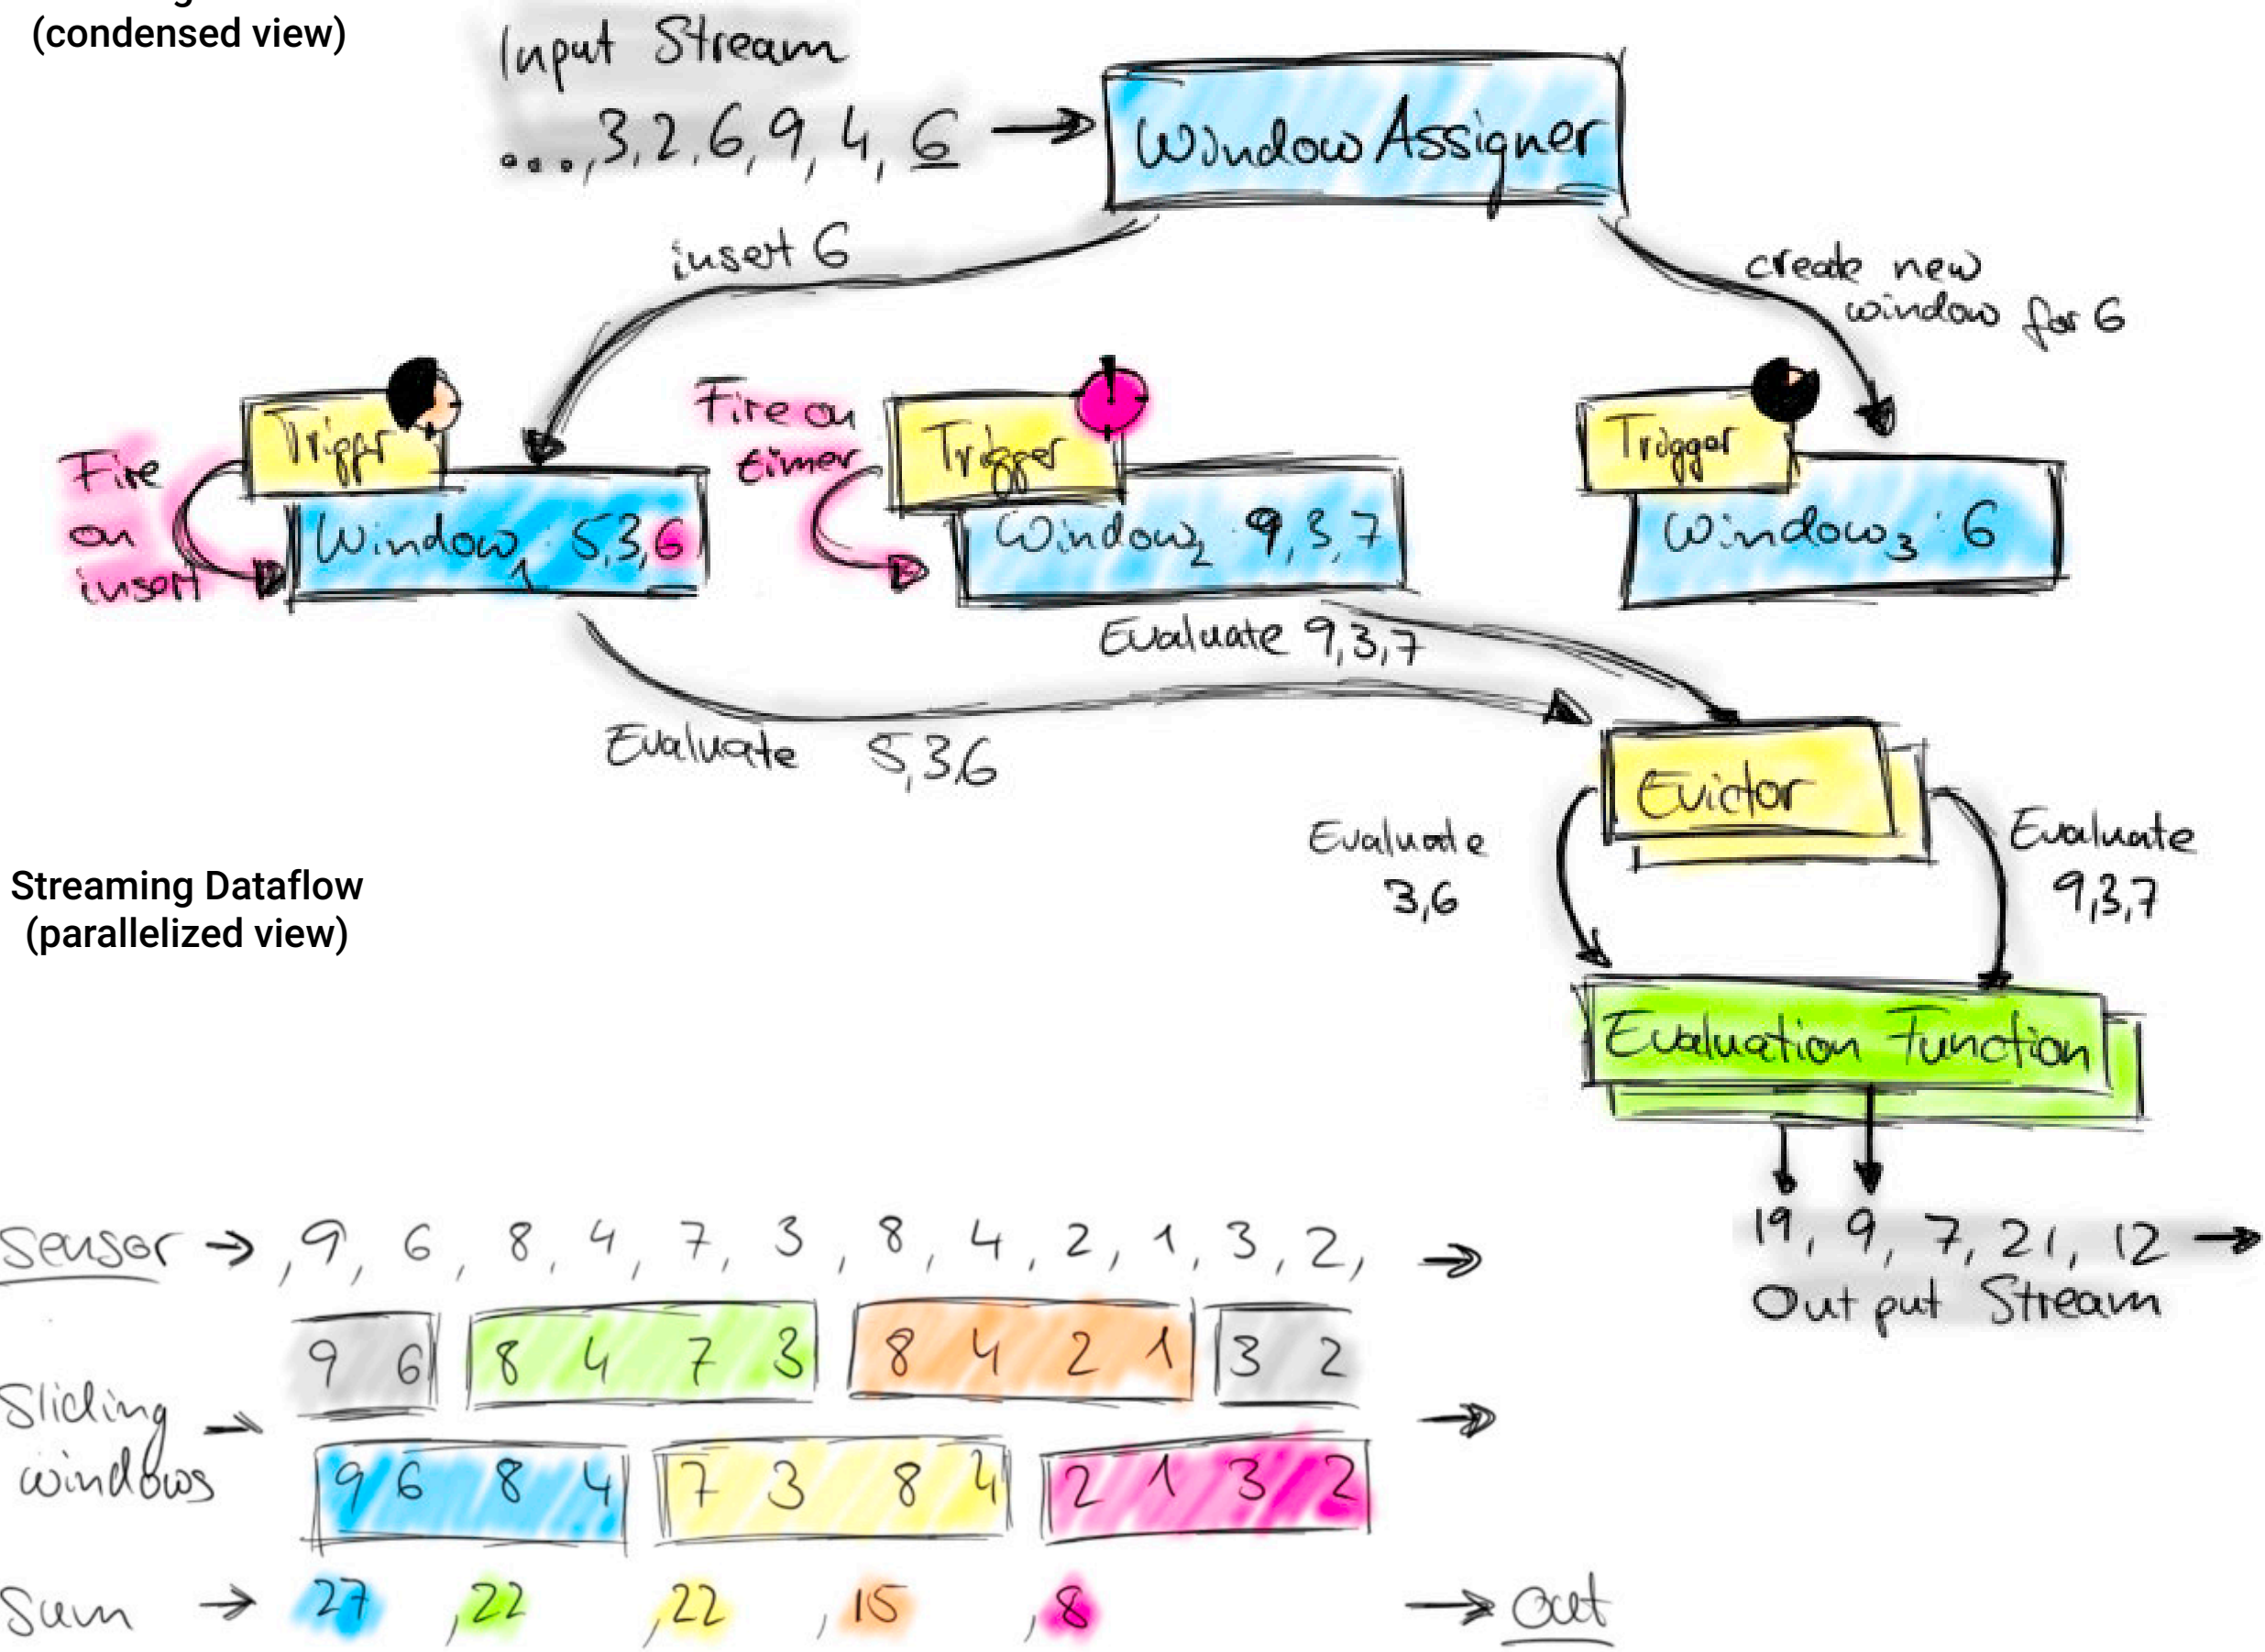 (condensed view)
Input Stream
...,3,2,6,9,4,6
Window Assigner
insert 6
create new
window for 6
Trigger
Fire on
timer
Trigger
Trigger
Fire
on
insert
Window1: 5,3,6
Window2: 9,3,7
Window3: 6
Evaluate 9,3,7
Evaluate 5,3,6
Evictor
Evaluate
3,6
Evaluate
9,3,7
Streaming Dataflow
(parallelized view)
Evaluation Function
19, 9, 7, 21, 12
Output Stream
Sensor → ,9, 6, 8, 4, 7, 3, 8, 4, 2, 1, 3, 2, →
9 6 8 4 7 3 8 4 2 1 3 2
Sliding →
windows
9 6 8 4 7 3 8 4 2 1 3 2
Sum → 27 ,22 ,22 , 15 , 8 → out